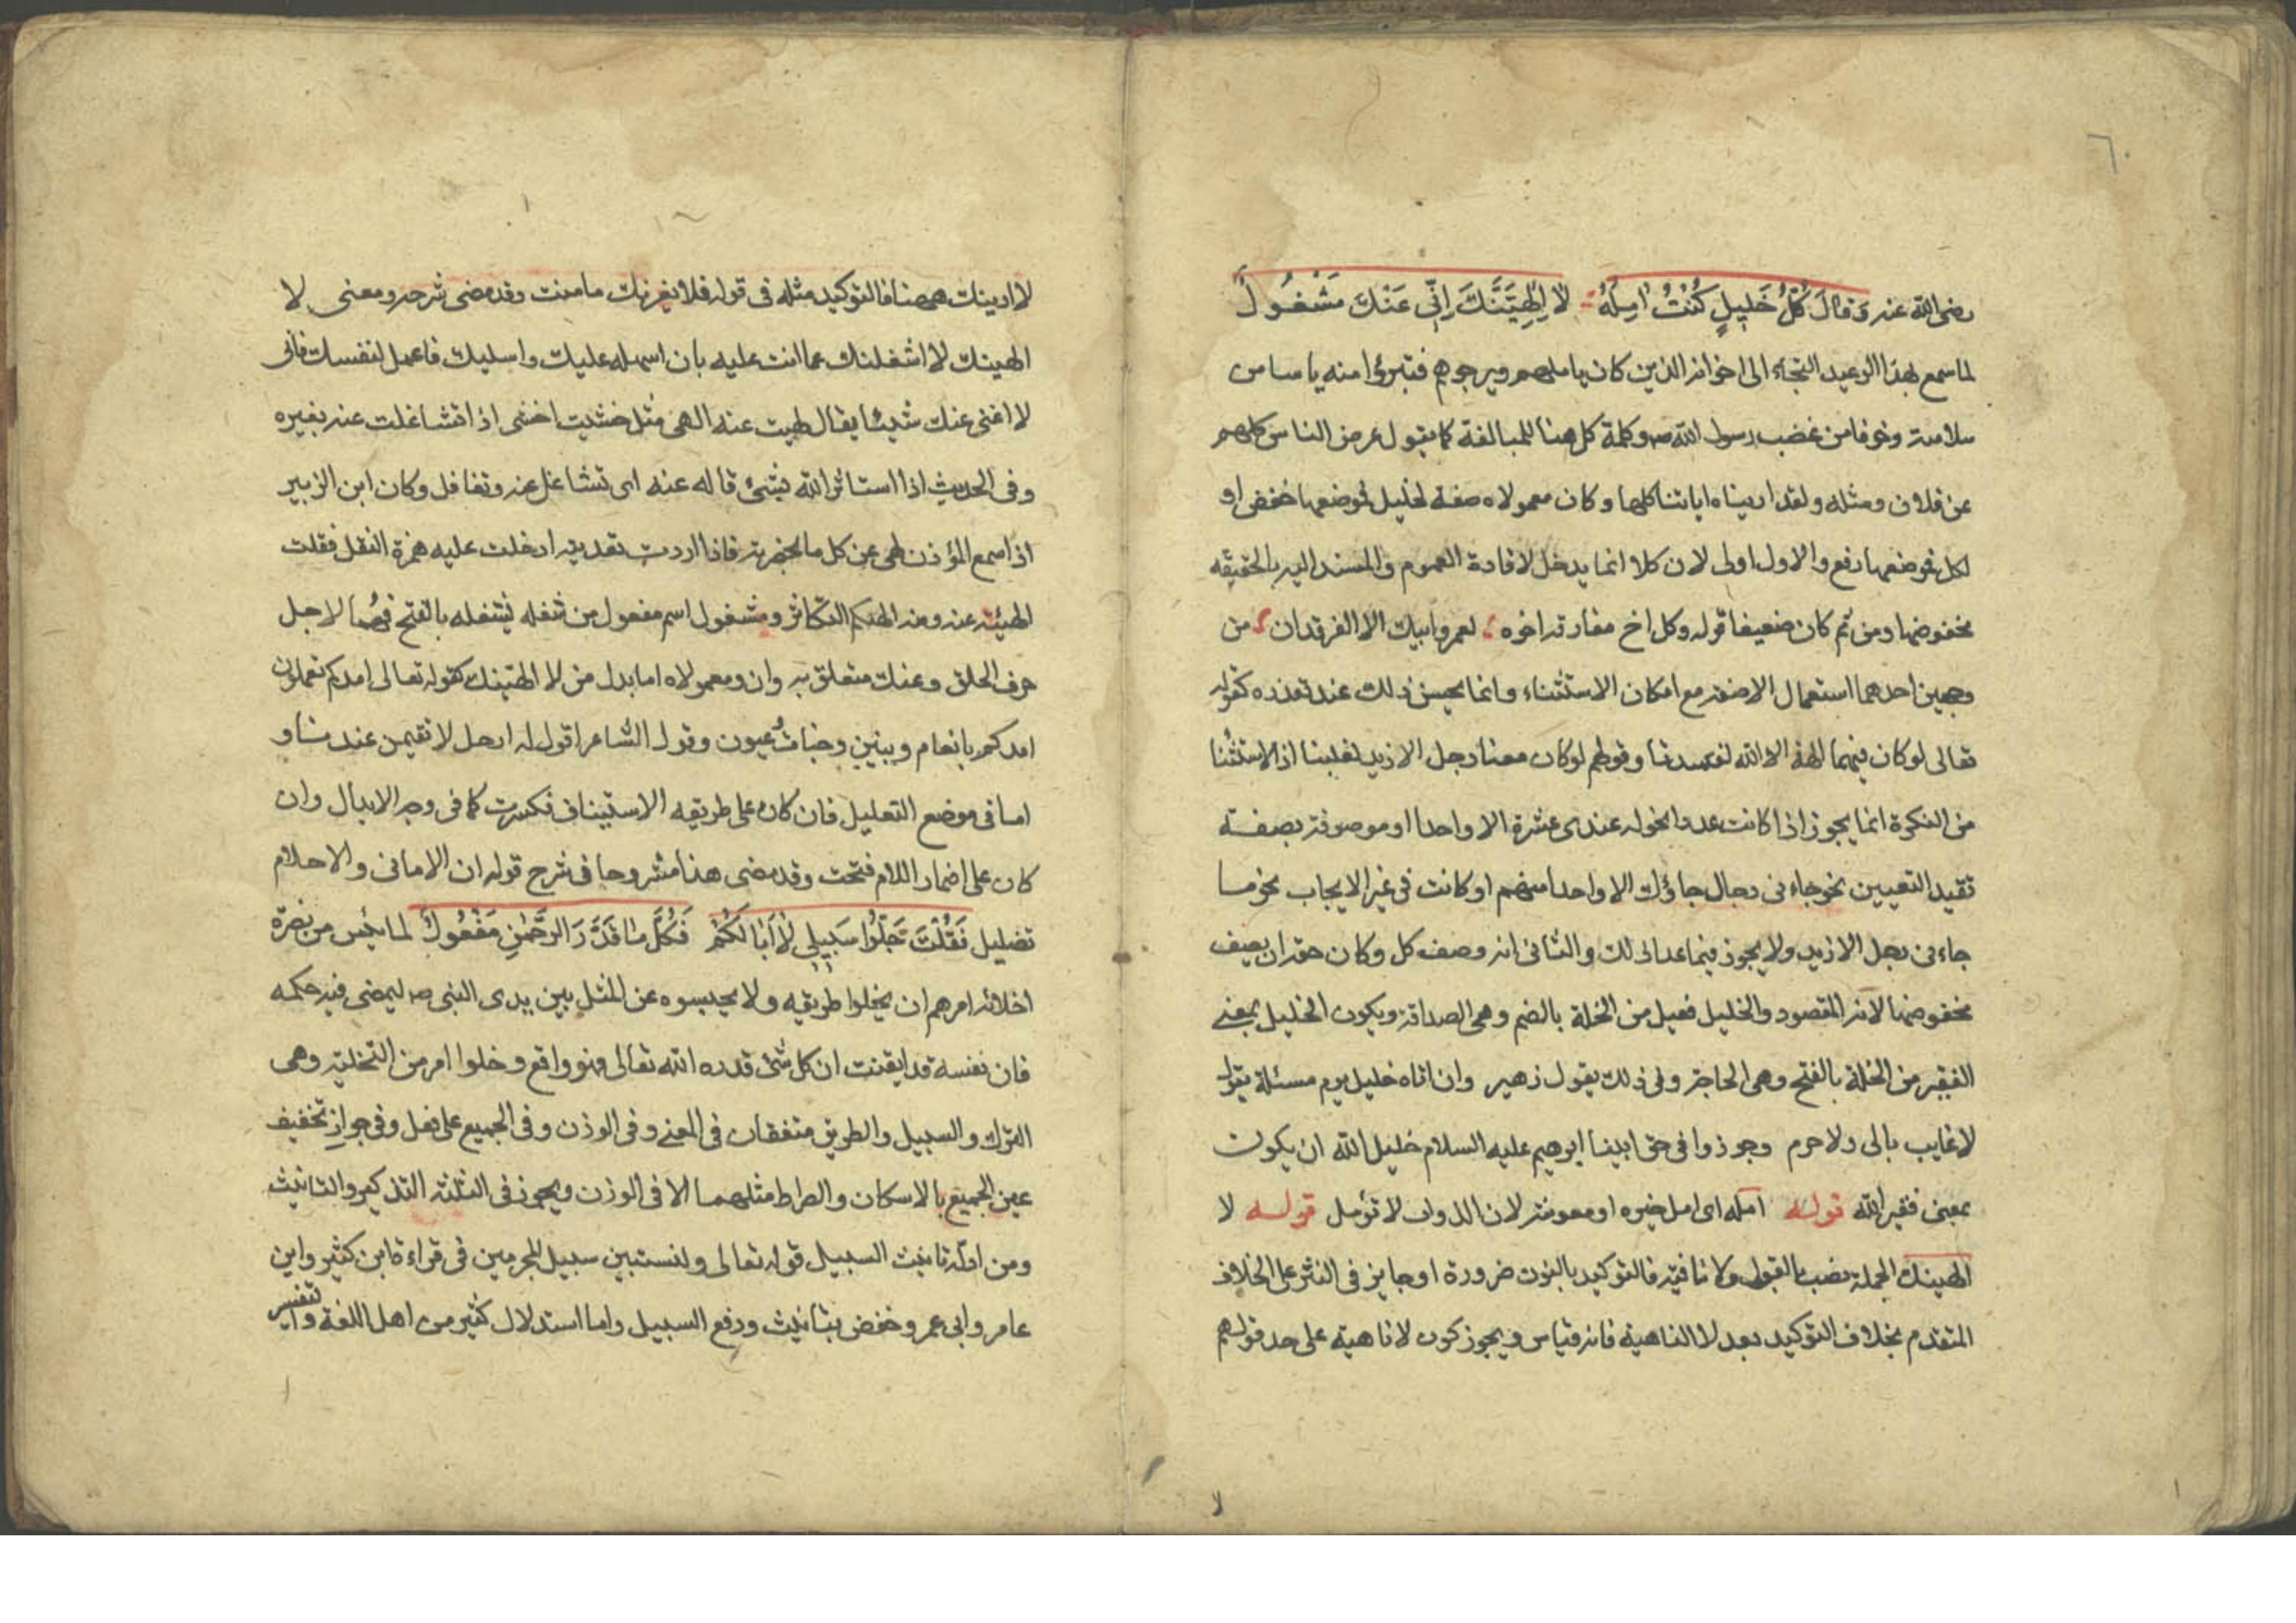 ٦٠
رضى الله عنه وَقَالَ كُلُّ خَلِيلٍ كُنْتُ اٰمِلُهُ لَا اُلْهِيَنَّكَ اِنِّى عَنْكَ مَشْغُولُ
لما سمع بهذا الوعيد التجاء الى اخوانه الذين كان ياملهم ويرجوهم فتبرؤا منه ياسا من
سلامته وخوفا من غضب رسول الله ص وكلمة كل هنا للمبالغة كما يقول عرض الناس كلهم
عن فلان ومثله ولقد اريناه اياتنا كلها وكان معمولاه صفة لخليل فموضعها خفض او
لكل فموضعها رفع والاول اولى لان كلا انما يدخل لافادة العموم والمسند اليه بالحقيقه
مخفوضها ومن ثم كان ضعيفا قوله وكل اخ مفارقه اخوه لعمر وابيك الا الفرقدان من
وجهين احدهما استعمال الا صفة مع امكان الاستثناء وانما يحسن ذلك عند تعذره كقوله
تعالى لو كان فيهما الهة الا الله لفسدتا وقولهم لو كان معنا رجل الا زيد لغلبنا اذ الاستثنا
من النكرة انما يجوز اذا كانت عددا نحو له عندى عشرة الا واحدا او موصوفة بصفة
تقيد التعيين نحو جاءنى رجال جاؤك الا واحدا منهم او كانت فى غير الايجاب نحو ما
جاءنى رجل الا زيد ولا يجوز فيما عدا ذلك والثانى انه وصف كل وكان حقه ان يصف
مخفوضها لانه المقصود والخليل فعيل من الخلة بالضم وهى الصداقة ويكون الخليل بمعنى
الفقير من الخلة بالفتح وهى الحاجة وفى ذلك يقول زهير وان اتاه خليل يوم مسئلة يقول
لا غايب بالى ولا حرم وجوزوا فى حق ابينا ابرهيم عليه السلام خليل الله ان يكون
بمعنى فقير الله قوله امله اى امل خيره او معونته لان الذوات لا تؤمل قوله لا
الهينك الجملة نصب بالقول ولا نافية فالتوكيد بالنون ضرورة او جايز فى النثر على الخلاف
المتقدم بخلاف التوكيد بعد لا الناهية فانه قياس ويجوز كون لا ناهية على حد قولهم
لا
لا ارينك ههنا فالتوكيد مثله فى قوله فلا يغرنك ما منت وقد مضى شرحه ومعنى لا
الهينك لا اشغلنك عما انت عليه بان اسهله عليك واسليك فاعمل لنفسك فانى
لا اغنى عنك شيئا يقال لهيت عنه الهى مثل خشيت اخشى اذا تشاغلت عنه بغيره
وفى الحديث اذا استاثر الله بشئ فاله عنه اى تشاغل عنه وتغافل وكان ابن الزبير
اذا سمع المؤذن لهى عن كل ما بحضرته فاذا اردت تعديته ادخلت عليه همزة النقل فقلت
الهيته عنه ومنه الهيكم التكاثر ومشغول اسم مفعول من شغله يشغله بالفتح فيهما لاجل
حرف الحلق وعنك متعلق به وان ومعمولاه اما بدل من لا الهينك كقوله تعالى امدكم تعملون
امدكم بانعام وبنين وجنات وعيون وقول الشاعر اقول له ارحل لا تقيمن عندنا و
اما فى موضع التعليل فان كان على طريقه الاستيناف فكسرت كما فى وجه الابدال وان
كان على اضمار اللام فتحت وقد مضى هذا مشروحا فى شرح قوله ان الامانى والاحلام
تضليل فَقُلْتُ خَلُّوا سَبِيلِى لَا اَبَا لَكُمُ فَكُلُّ مَا قَدَّرَ الرَّحْمٰنُ مَفْعُولُ لما يئس من نصرة
اخلائه امرهم ان يخلوا طريقه ولا يحبسوه عن المثل بين يدى النبى ص ليمضى فيه حكمه
فان نفسه قد ايقنت ان كل شئ قدره الله تعالى فهو واقع وخلوا امر من التخلية وهى
الترك والسبيل والطريق متفقان فى المعنى وفى الوزن وفى الجميع على فعل وفى جواز تخفيف
عين الجميع بالاسكان والصراط مثلهما الا فى الوزن ويجوز فى الثلثة التذكير والتانيث
ومن ادلة تانيث السبيل قوله تعالى ولتستبين سبيل المجرمين فى قراءة ابن كثير وابن
عامر وابى عمر وحفص بتانيث ورفع السبيل واما استدلال كثير من اهل اللغة والتفسير